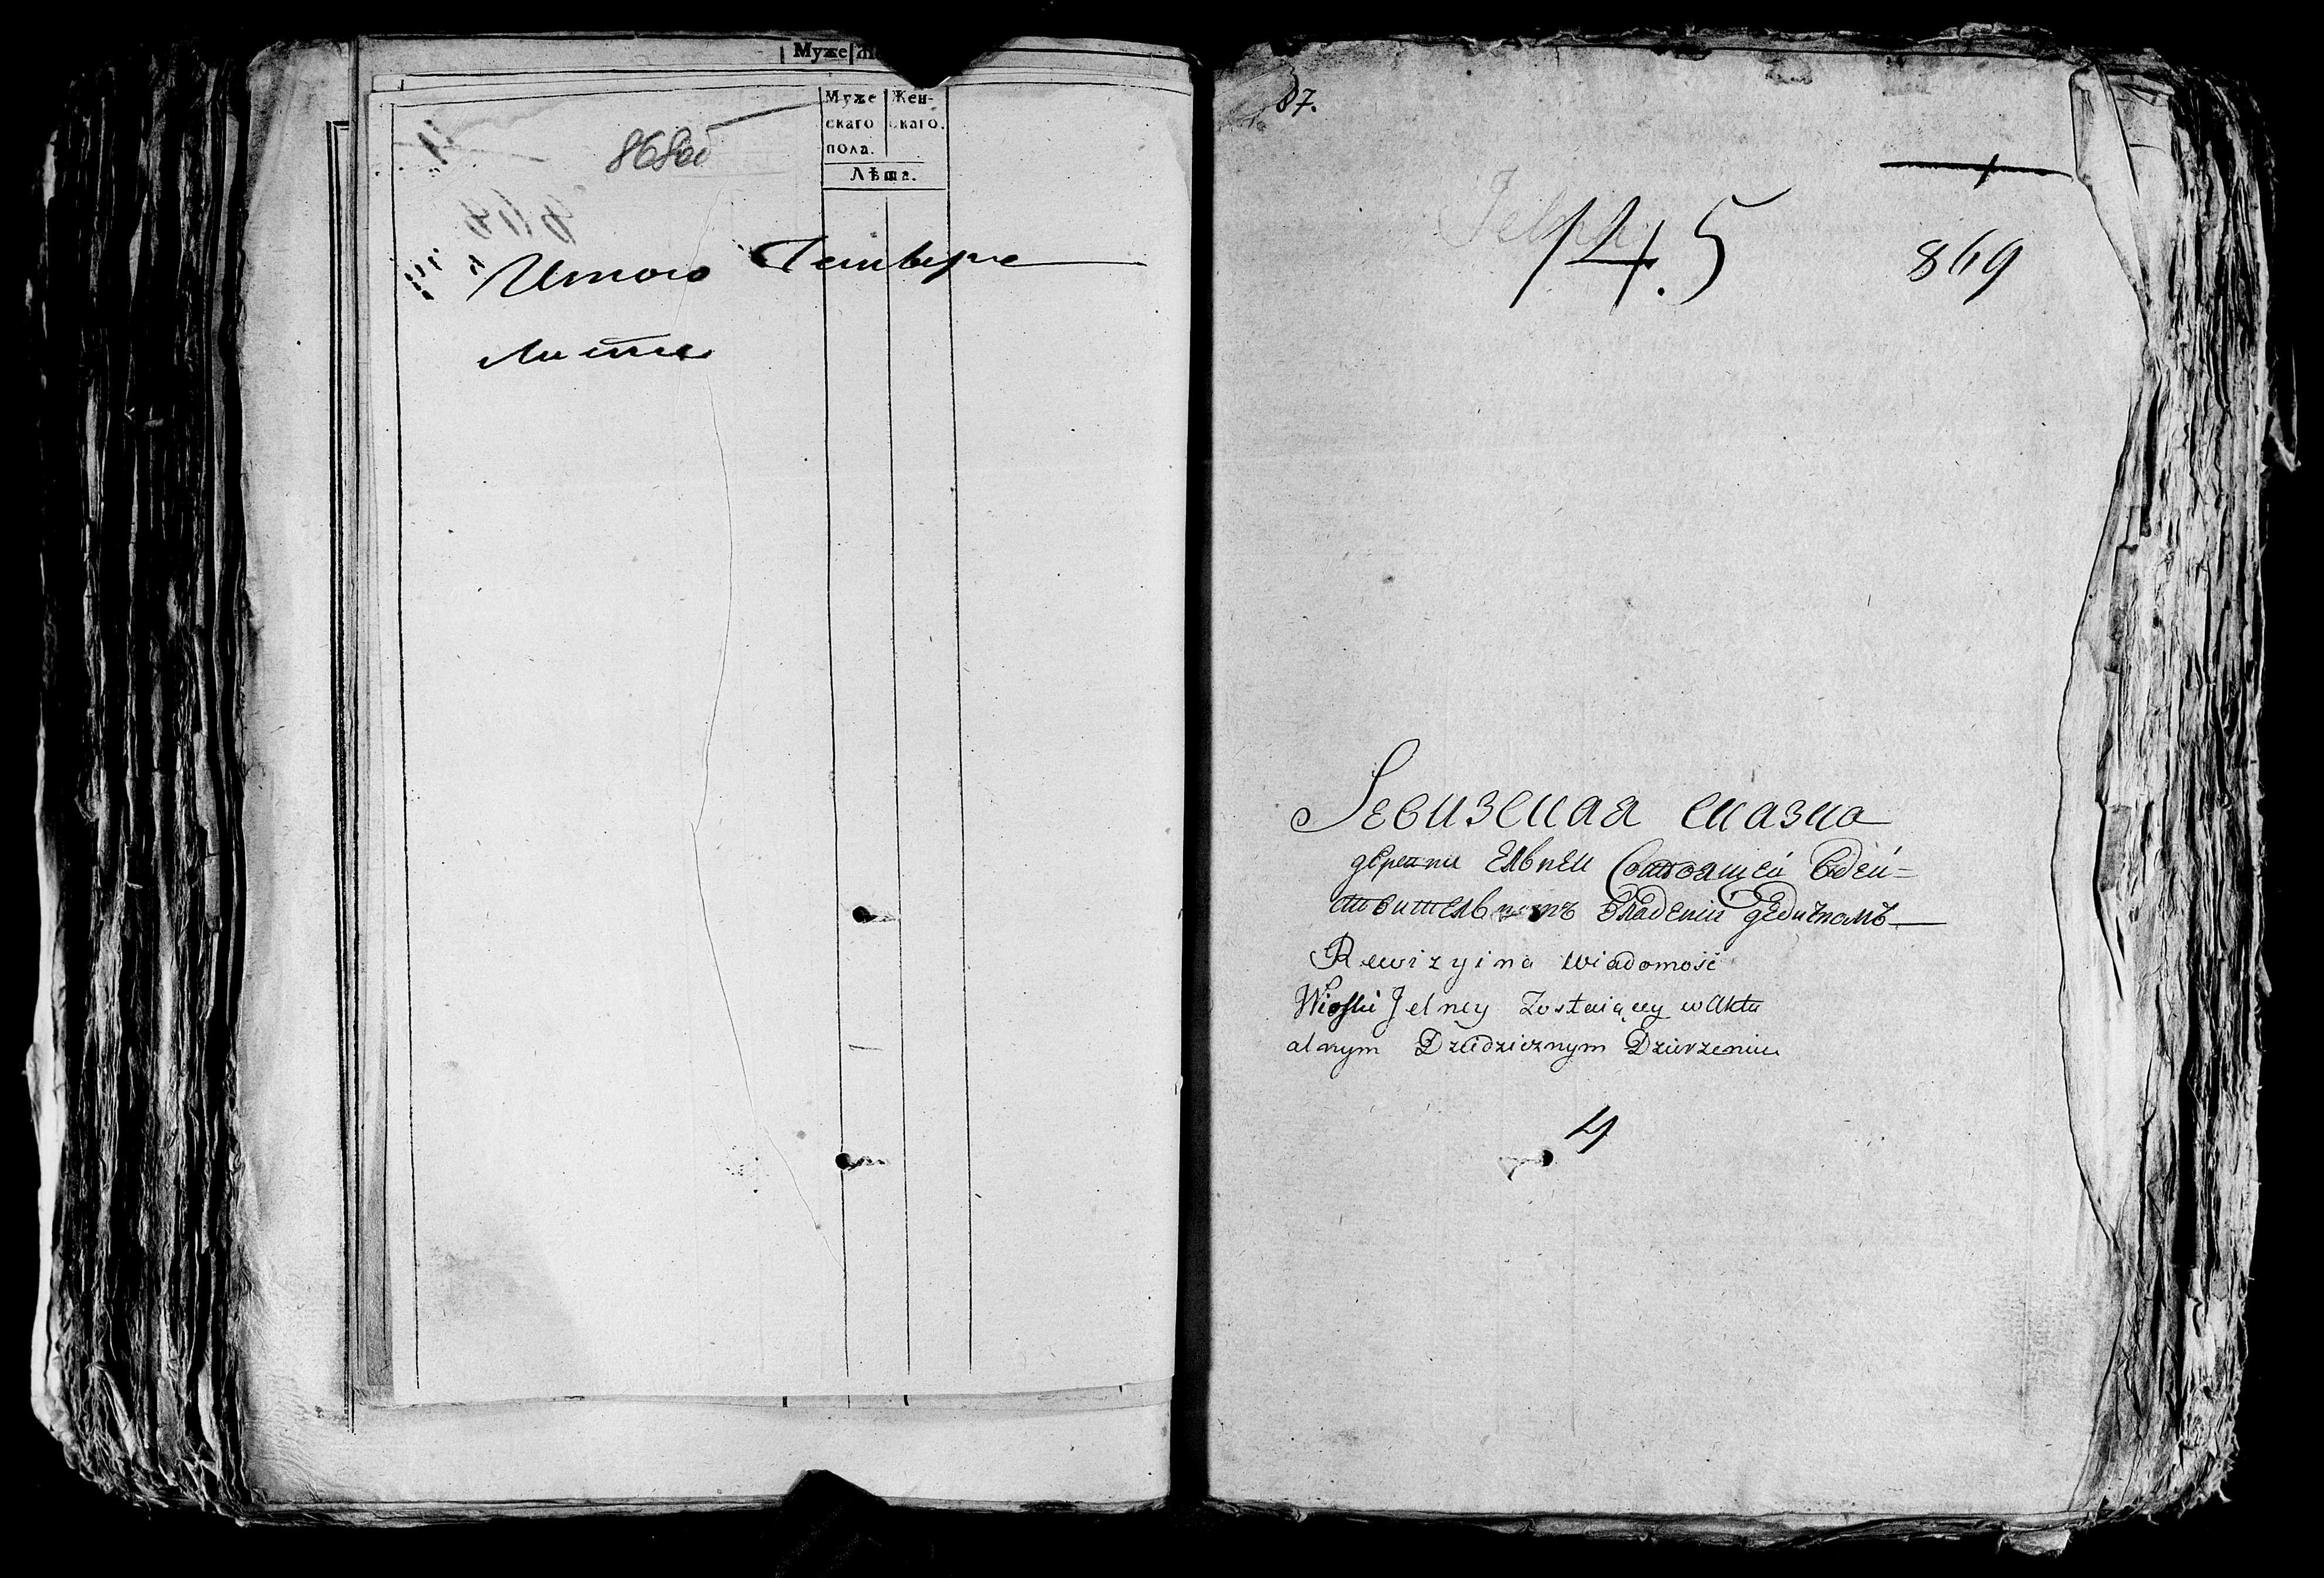 Муже
Муже Жен-
скаго скаго.
пола.
Лѣта.
868об
Итого Четыре
листа
87.
Jelna
14.5
869
Ревизская сказка
деревни Ельней состоящей вдей-
ствительномъ владении дедичномъ
Rewizyina wiadomość
Wioski Jelney Zostaiącey w Aktu
alnym Dziedzicznym Dzierzeniu
4